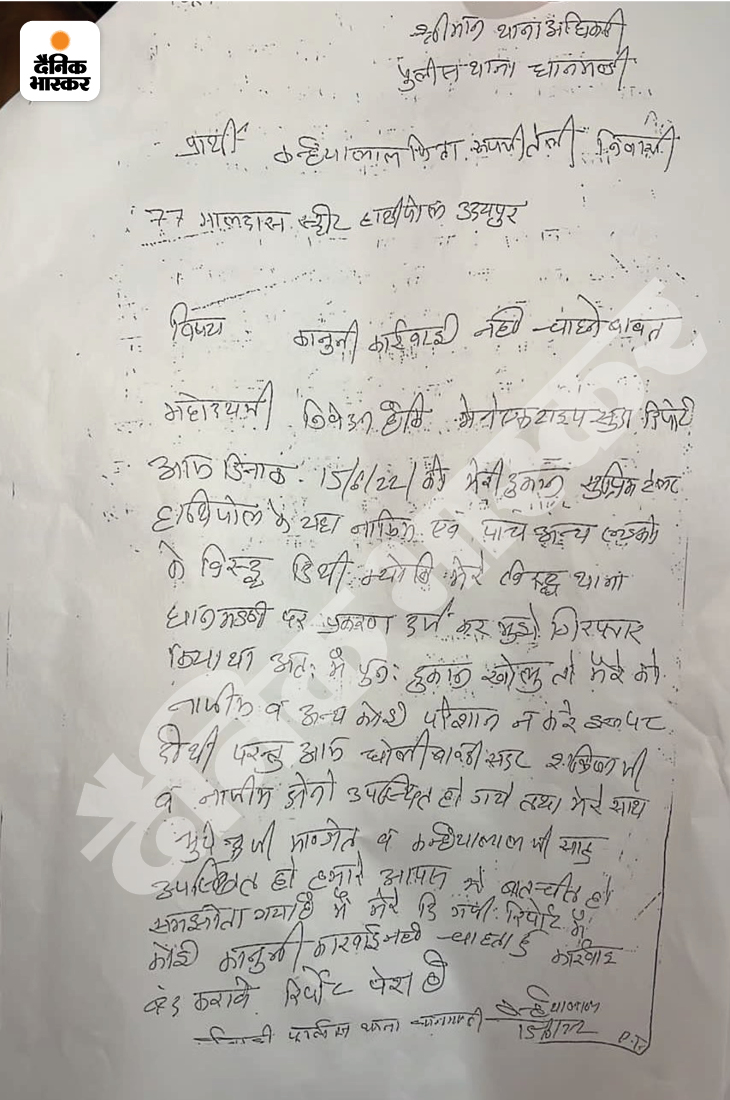 दैनिक
भास्कर
श्रीमान थाना अधिकारी
पुलीस थाना धानमण्डी
प्रार्थी कन्हैयालाल पिता रूपजी तेली निवासी
77 मालदास स्ट्रीट हाथीपोल उदयपुर
विषय कानुनी कार्रवाई नही चाहने बाबत
महोदयजी निवेदन है कि मेने एक टाईप सुदा रिपोर्ट
आज दिनांक 15/6/22 को मेरी दुकान सुप्रिम टेलर
हाथिपोल के यहा नाजिम एवं पांच अन्य लडको
के विरुद्ध दि थी मेरे विरुद्ध थाना
धानमण्डी पर प्रकरण दर्ज कर मुझे गिरफ्तार
किया था अतः मैं पुनः दुकान खोलु तो मेरे को
नाजीम व अन्य कोई परेशान न करे
दी थी परन्तु आज धोली बावडी सदर जी
व नाजीम दोनो उपस्थित हो गये तथा मेरे साथ
जी व कन्हैयालाल जी साहु
उपस्थित हो हमारे आपस मे बातचीत हो
समझोता गया है मैं मेरे दि गयी रिपोर्ट में
कोई कानुनी कारवाई नही चाहता हुं कार्रवाई
बंद करावे रिर्पोट पेश है
थाना धानमण्डी कन्हैयालाल
15/6/22
P.T.
दैनिक भास्कर